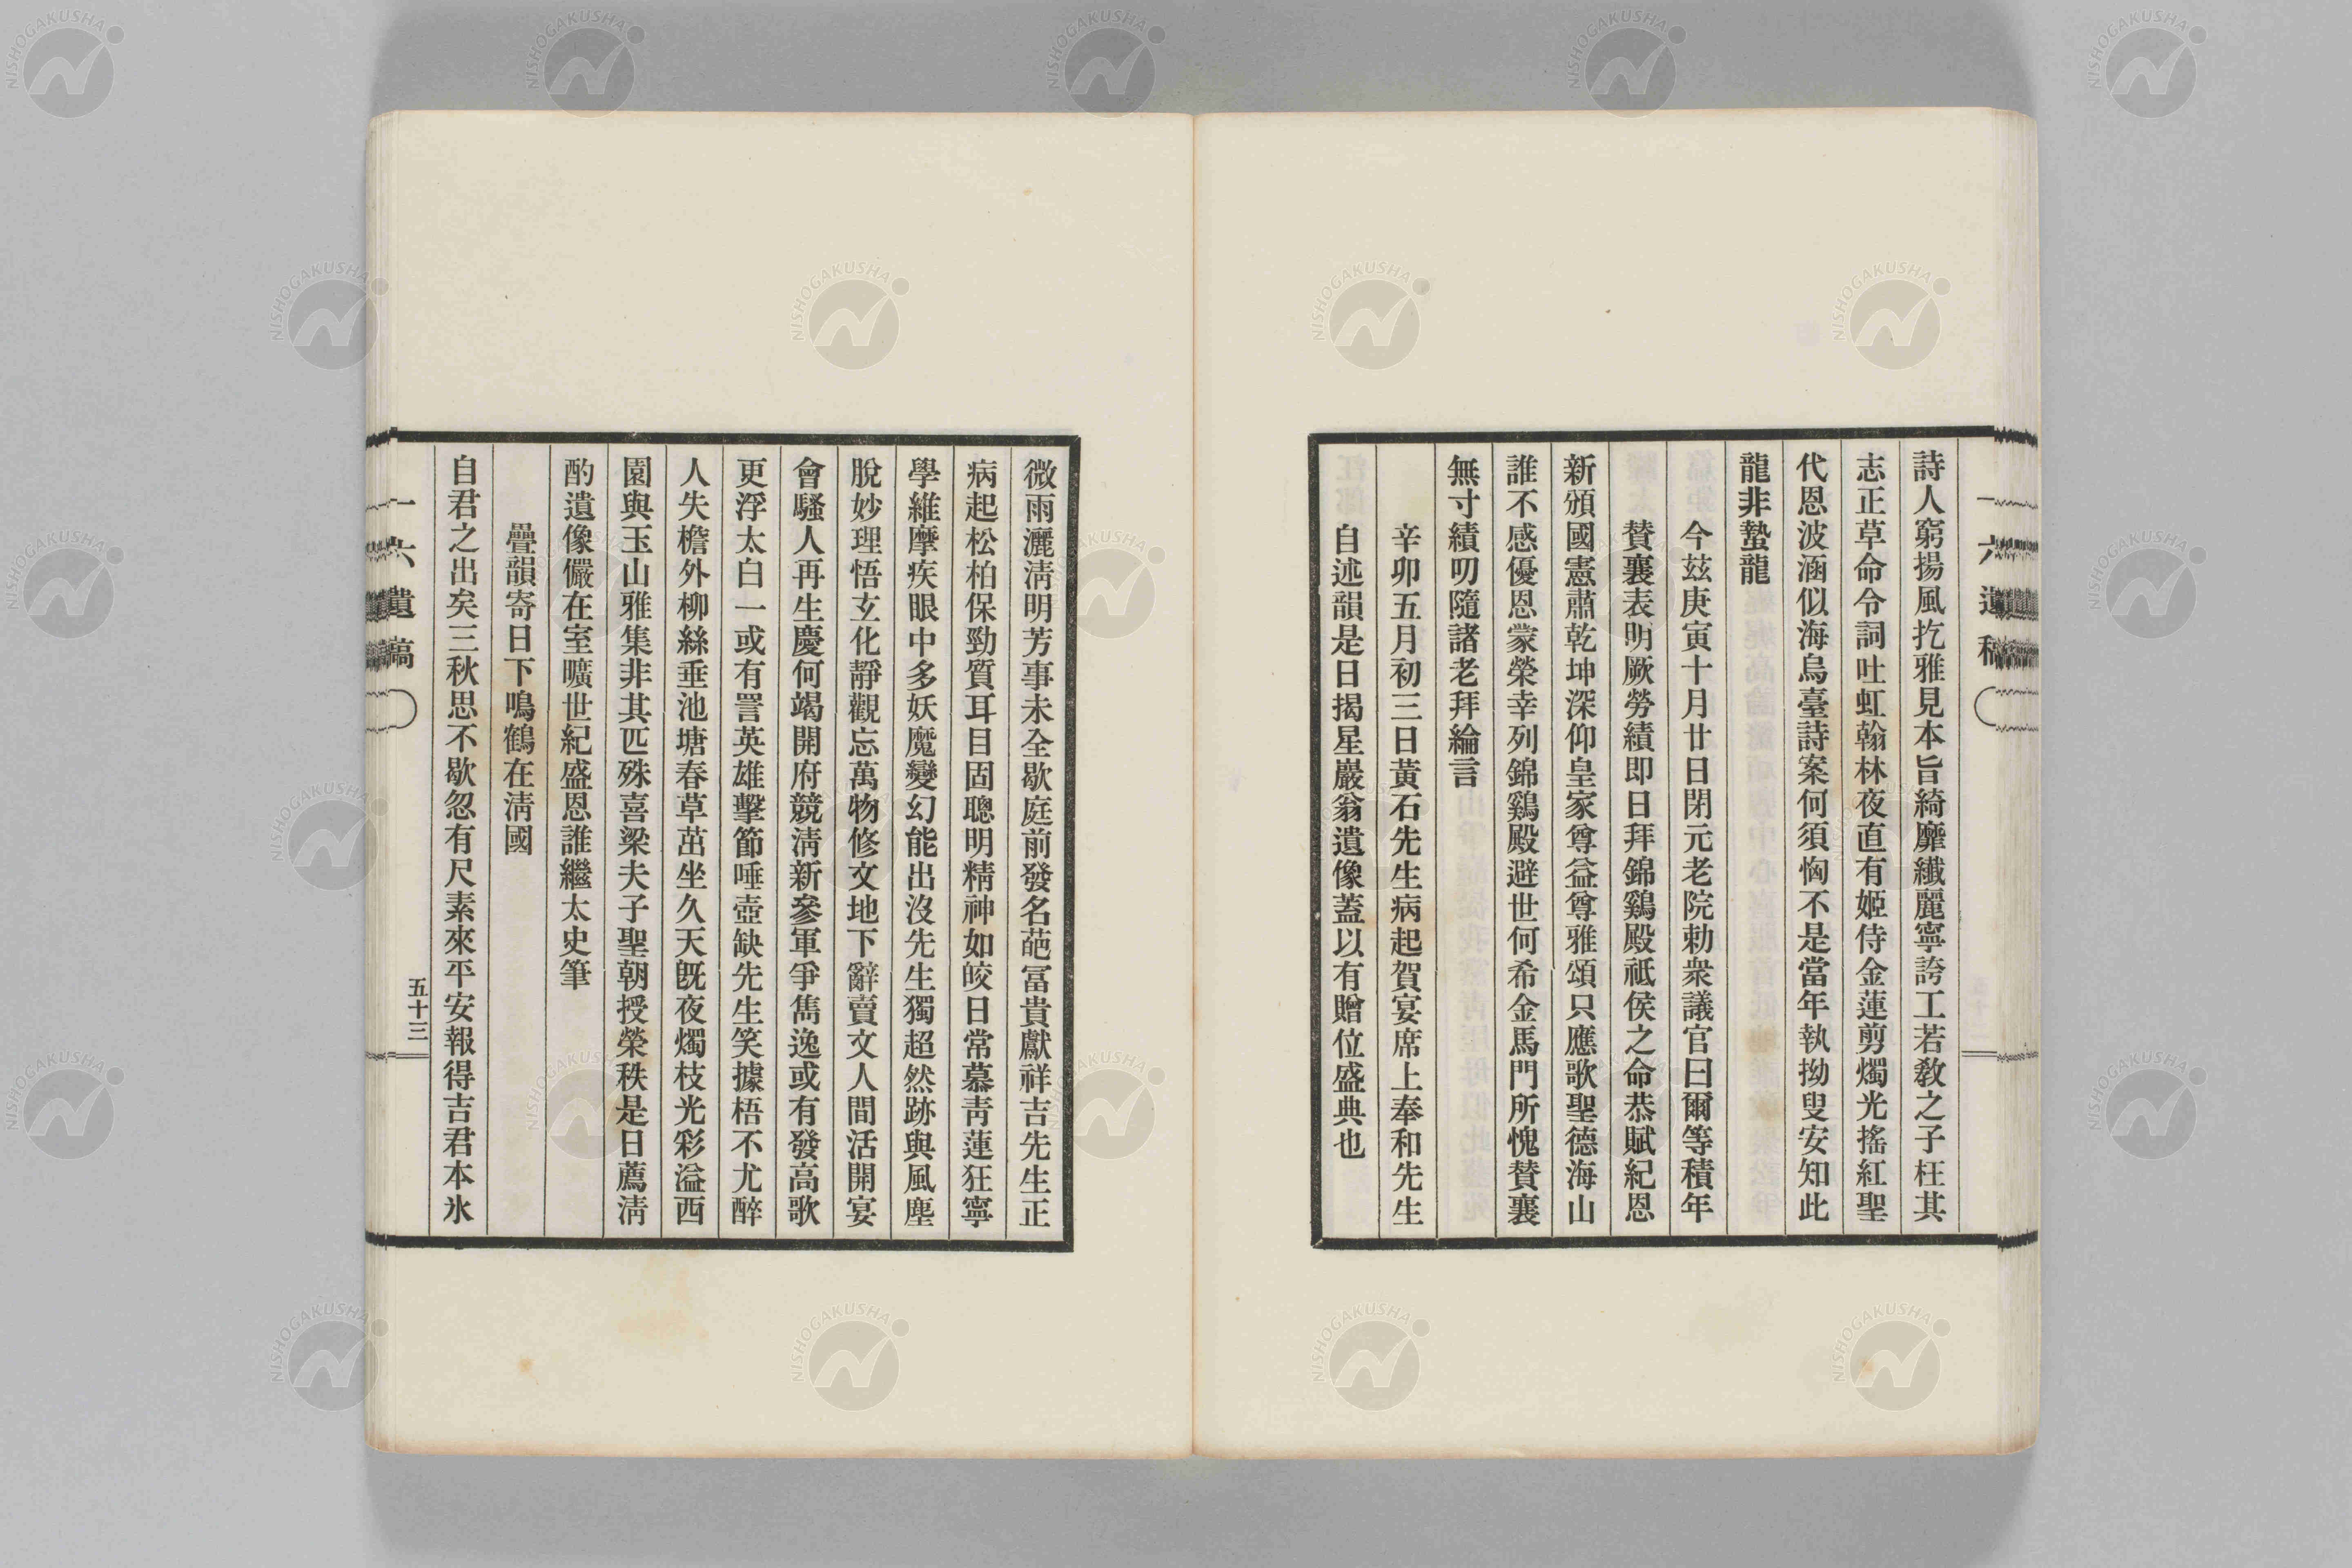 詩人窮揚風扢雅見本旨綺靡纖麗寧誇工若教之子枉其
志正草命令詞吐虹翰林夜直有姬侍金蓮剪燭光搖紅聖
代恩波涵似海烏臺詩案何須恟不是當年執拗叟安知此
龍非蟄龍
今玆庚寅十月廿日閉元老院勅衆議官曰爾等積年
賛襄表明厥勞績即日拜錦鷄殿祗侯之命恭賦紀恩
新頒國憲肅乾坤深仰皇家尊益尊雅頌只應歌聖德海山
誰不感優恩蒙榮幸列錦鷄殿避世何希金馬門所愧賛襄
無寸績叨隨諸老拜綸言
辛卯五月初三日黃石先生病起賀宴席上奉和先生
自述韻是日揭星巖翁遺像蓋以有贈位盛典也
微雨灑淸明芳事未全歇庭前發名葩富貴獻祥吉先生正
病起松柏保勁質耳目固聰明精神如皎日常慕靑蓮狂寧
學維摩疾眼中多妖魔變幻能出沒先生獨超然跡與風塵
脫妙理悟玄化靜觀忘萬物修文地下辭賣文人間活開宴
會騷人再生慶何竭開府競淸新參軍爭雋逸或有發高歌
更浮太白一或有詈英雄擊節唾壺缺先生笑據梧不尤醉
人失檐外柳絲垂池塘春草茁坐久天旣夜燭枝光彩溢西
園與玉山雅集非其匹殊喜梁夫子聖朝授榮秩是日薦淸
酌遺像儼在室曠世紀盛恩誰繼太史筆
疊韻寄日下鳴鶴在淸國
自君之出矣三秋思不歇忽有尺素來平安報得吉君本氷
一六遺稿
五十三
NISHOGAKUSHA